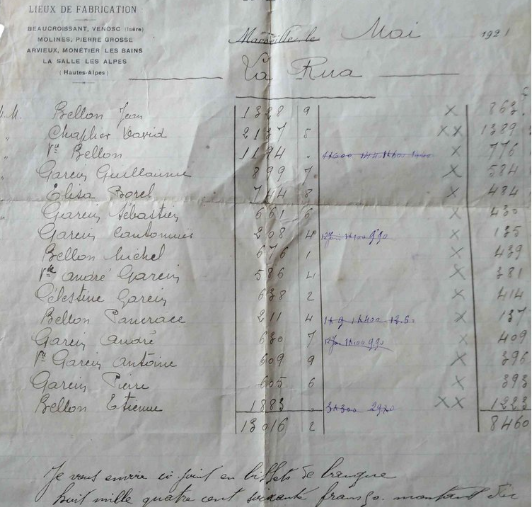 LIEUX DE FABRICATION
BEAUCROISSANT, VENOSC (Isère)
MOLINES, PIERRE GROSSE
ARVIEUX, MONETIER LES BAINS
LA SALLE LES ALPES
(Hautes-Alpes)
Mai 192
La Rua
Bellon Jean 1328 9 X 863
Chaffrey David 2137 XX 1389
Ve Bellon 1194 X 776
Garcin Guillaume 899 X 584
Elisa Borel 744 8 X 484
Garcin Sébastien 661 X 430
Garcin Cantonnier 208 4 X 135
Bellon Michel 676 1 X 439
Ve André Garcin 586 4 X 381
Célestine Garcin 638 2 X 414
Bellon Pancrace 211 4 X 137
Garcin André 630 7 X 409
Ve Garcin Antoine 609 9 X 396
Garcin Pierre 605 6 X 393
Bellon Etienne 1883 XX 1223
13016 2 8460
Je vous envoie ci joint en billets de banque
huit mille quatre cent soixante francs montant du